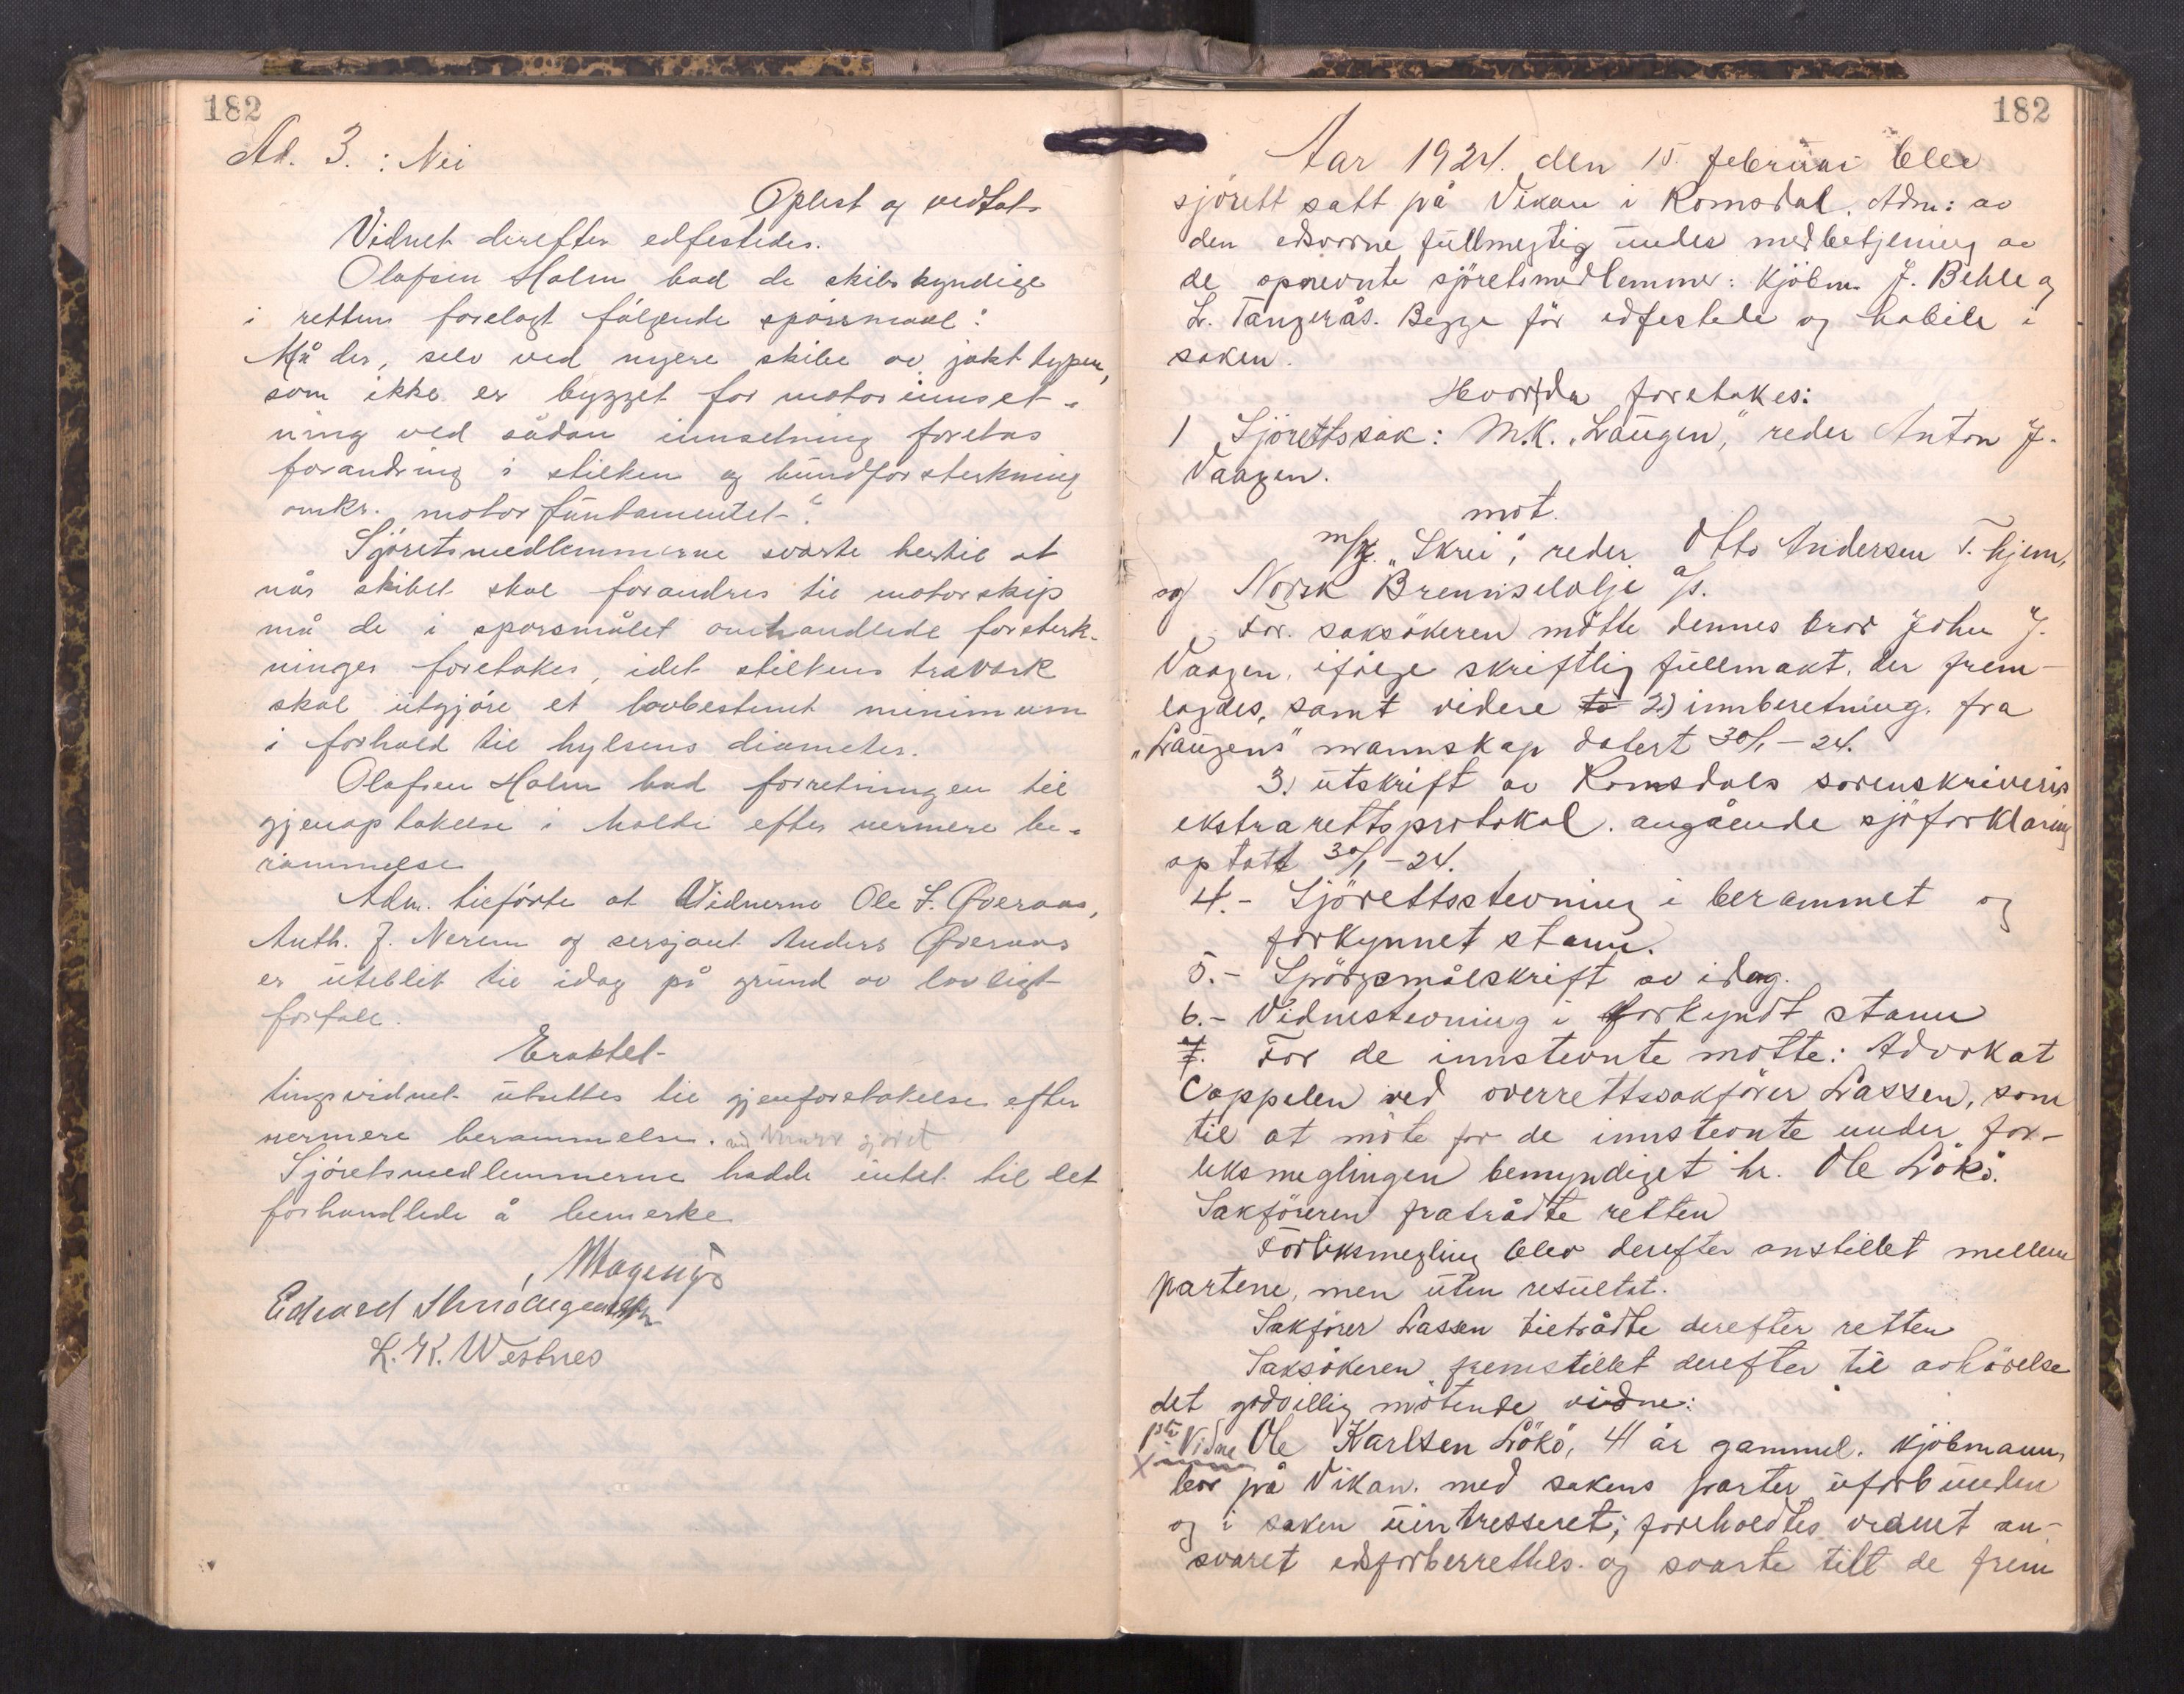 182
Ad. 3. : Nei
Oplest og vedtat
Vidnet derefter edfestedes.
Olafsen Holm bad de skibskyndige
i retten forelagt følgende spørsmaal:
Må der, selv ved nyere skibe av jakttypen,
som ikke er bygget for motorinnset-
ning ved sådan innsetning foretas
forandring i stilken og bundforsterkning
omkr. motorfundamentet".
Sjøretsmedlemmerne svarte hertil at
når skibet skal forandres til motorskip
må de i spørsmålet omhandlede forsterk-
ninger foretakes, idet stilkens
skal utgjøre et lovbestemt minimum
i forhold til hylsens diameter.
Olafsen Holm bad forretningen til
gjenoptakelse i Molde efter nermere be-
rammelse
Adm. tilførte at Vidnerne Ole S. Øveraas,
Anth. J. Nerem og sersjant Anders Øveraas
er uteblit til idag på grund av lovligt
forfall.
Eraktet
tingsvidnet utsettes til gjenforetakelse efter
nermere berammelse.
Sjøretsmedlemmerne hadde intet til det
forhandlede å bemerke
Edvard
L. K. Westnes
182
Aar 1924. den 15. februar blev
sjørett satt på Vikan i Romsdal. Adm: av
den edsvorne fullmegtig under medbetjening av
de opnevnte sjøretsmedlemmer: Kjøbm. J. Behle og
L. Tangerås. Begge før edfestede og habile i
saken.
Hvorda foretakes:
1 Sjørettssak: M.K. "Laugen", reder Anton J.
Vaagen.
mot.
m/k. "Skrei", reder Otto Andersen T.hjem,
og Norsk Brennselolje a/s.
For saksökeren mötte dennes bror John J.
Vaagen, ifølge skriftlig fullmakt. der frem-
lagdes, samt videre to 2) innberetning. fra
"Laugens" mannskap datert 30/1-24.
3.) utskrift av Romsdals sorenskriveris
ekstrarettsprotokol. angående sjöforklaring
optatt 30/1-24.
4.- Sjörettsstevning i berammet og
forkynnet stann.
5.- Spörgsmålskrift av idag.
6.- Vidnestevning i forkyndt stann
7. For de innstevnte mötte: Advokat
Cappelen ved overrettssakfører Lassen, som
til at möte for de innstevnte under for-
liksmeglingen bemyndiget hr. Ole Lökö.
Sakföreren fratrådte retten
Forliksmegling blev derefter anstillet mellem
partene, men uten resultat.
Sakfører Lassen tiltrådte derefter retten
Saksökeren fremstillet derefter til avhörelse
det godvillig mötende vidne:
1ste Vidne Ole Karlsen Lökö, 41 år gammel. kjöbmann,
bor på Vikan. med sakens parter uforbunden
og i saken uintresseret; foreholdtes vidnet an-
svaret edsforberrettels. og svarte till de frem